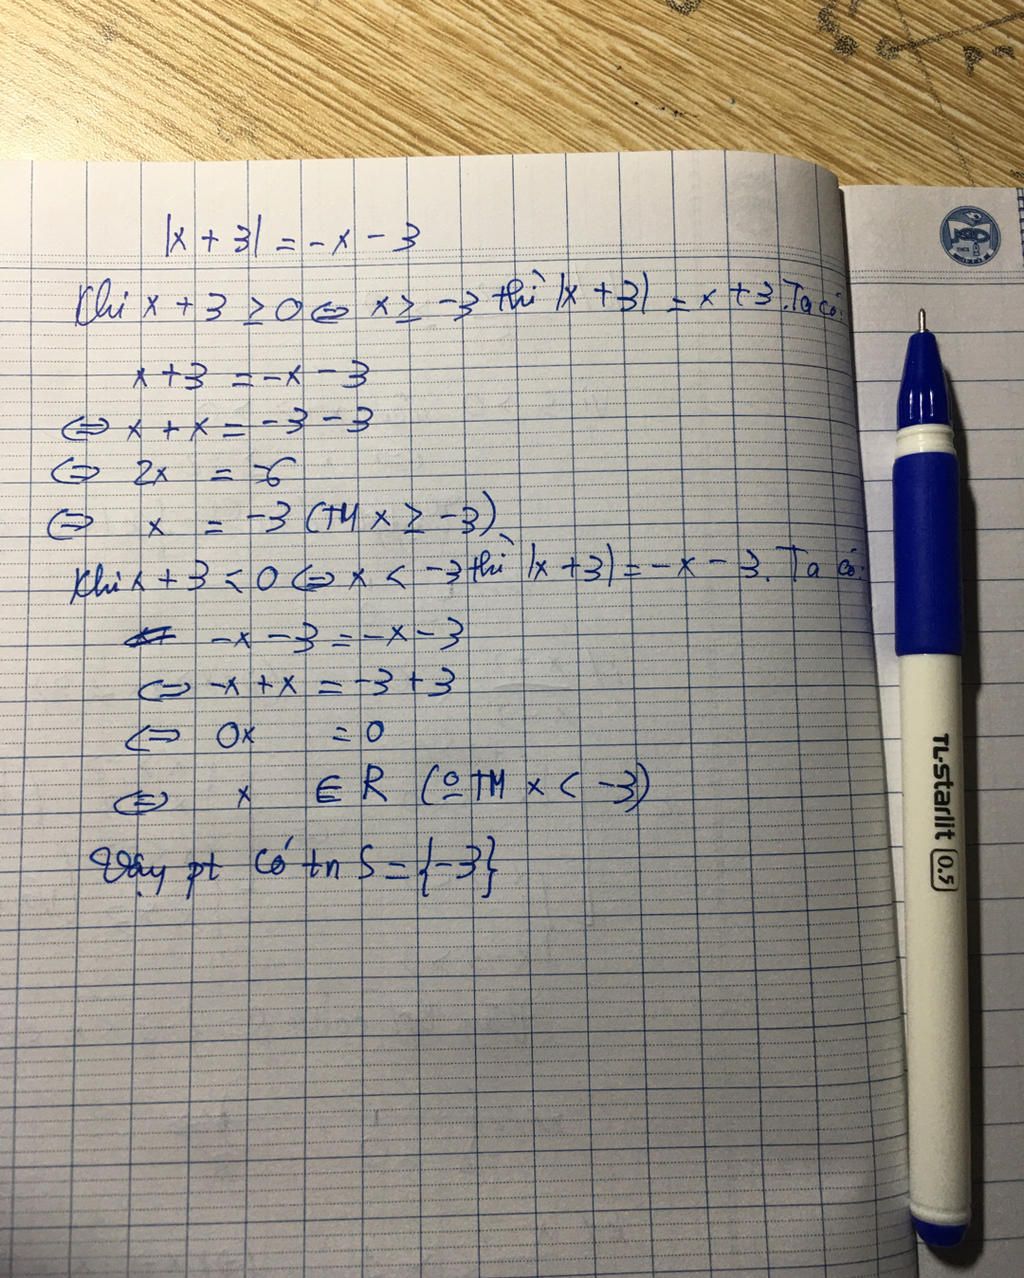 |x + 3| = -x - 3
Khi x + 3 ≥ 0 ⇔ x ≥ -3 thì |x + 3| = x + 3. Ta có:
x + 3 = -x - 3
⇔ x + x = -3 - 3
⇔ 2x = -6
⇔ x = -3 (TM x ≥ -3)
Khi x + 3 < 0 ⇔ x < -3 thì |x + 3| = -x - 3. Ta có:
-x - 3 = -x - 3
⇔ -x + x = -3 + 3
⇔ 0x = 0
⇔ x ∈ R (o TM x < -3)
Vậy pt có tn S = {-3}
TL-Starlit 0.5